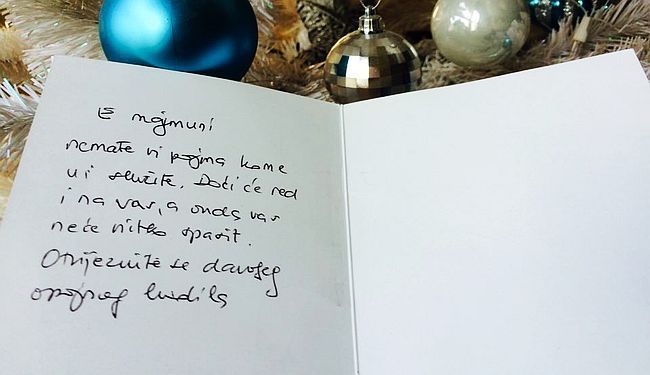 E mojmuni
nemate vi pojma kome
vi služite. Doći će red
i na vas, a onda vas
neće nitko spasit.
Otrijeznite se davoljeg
opojnog ludila